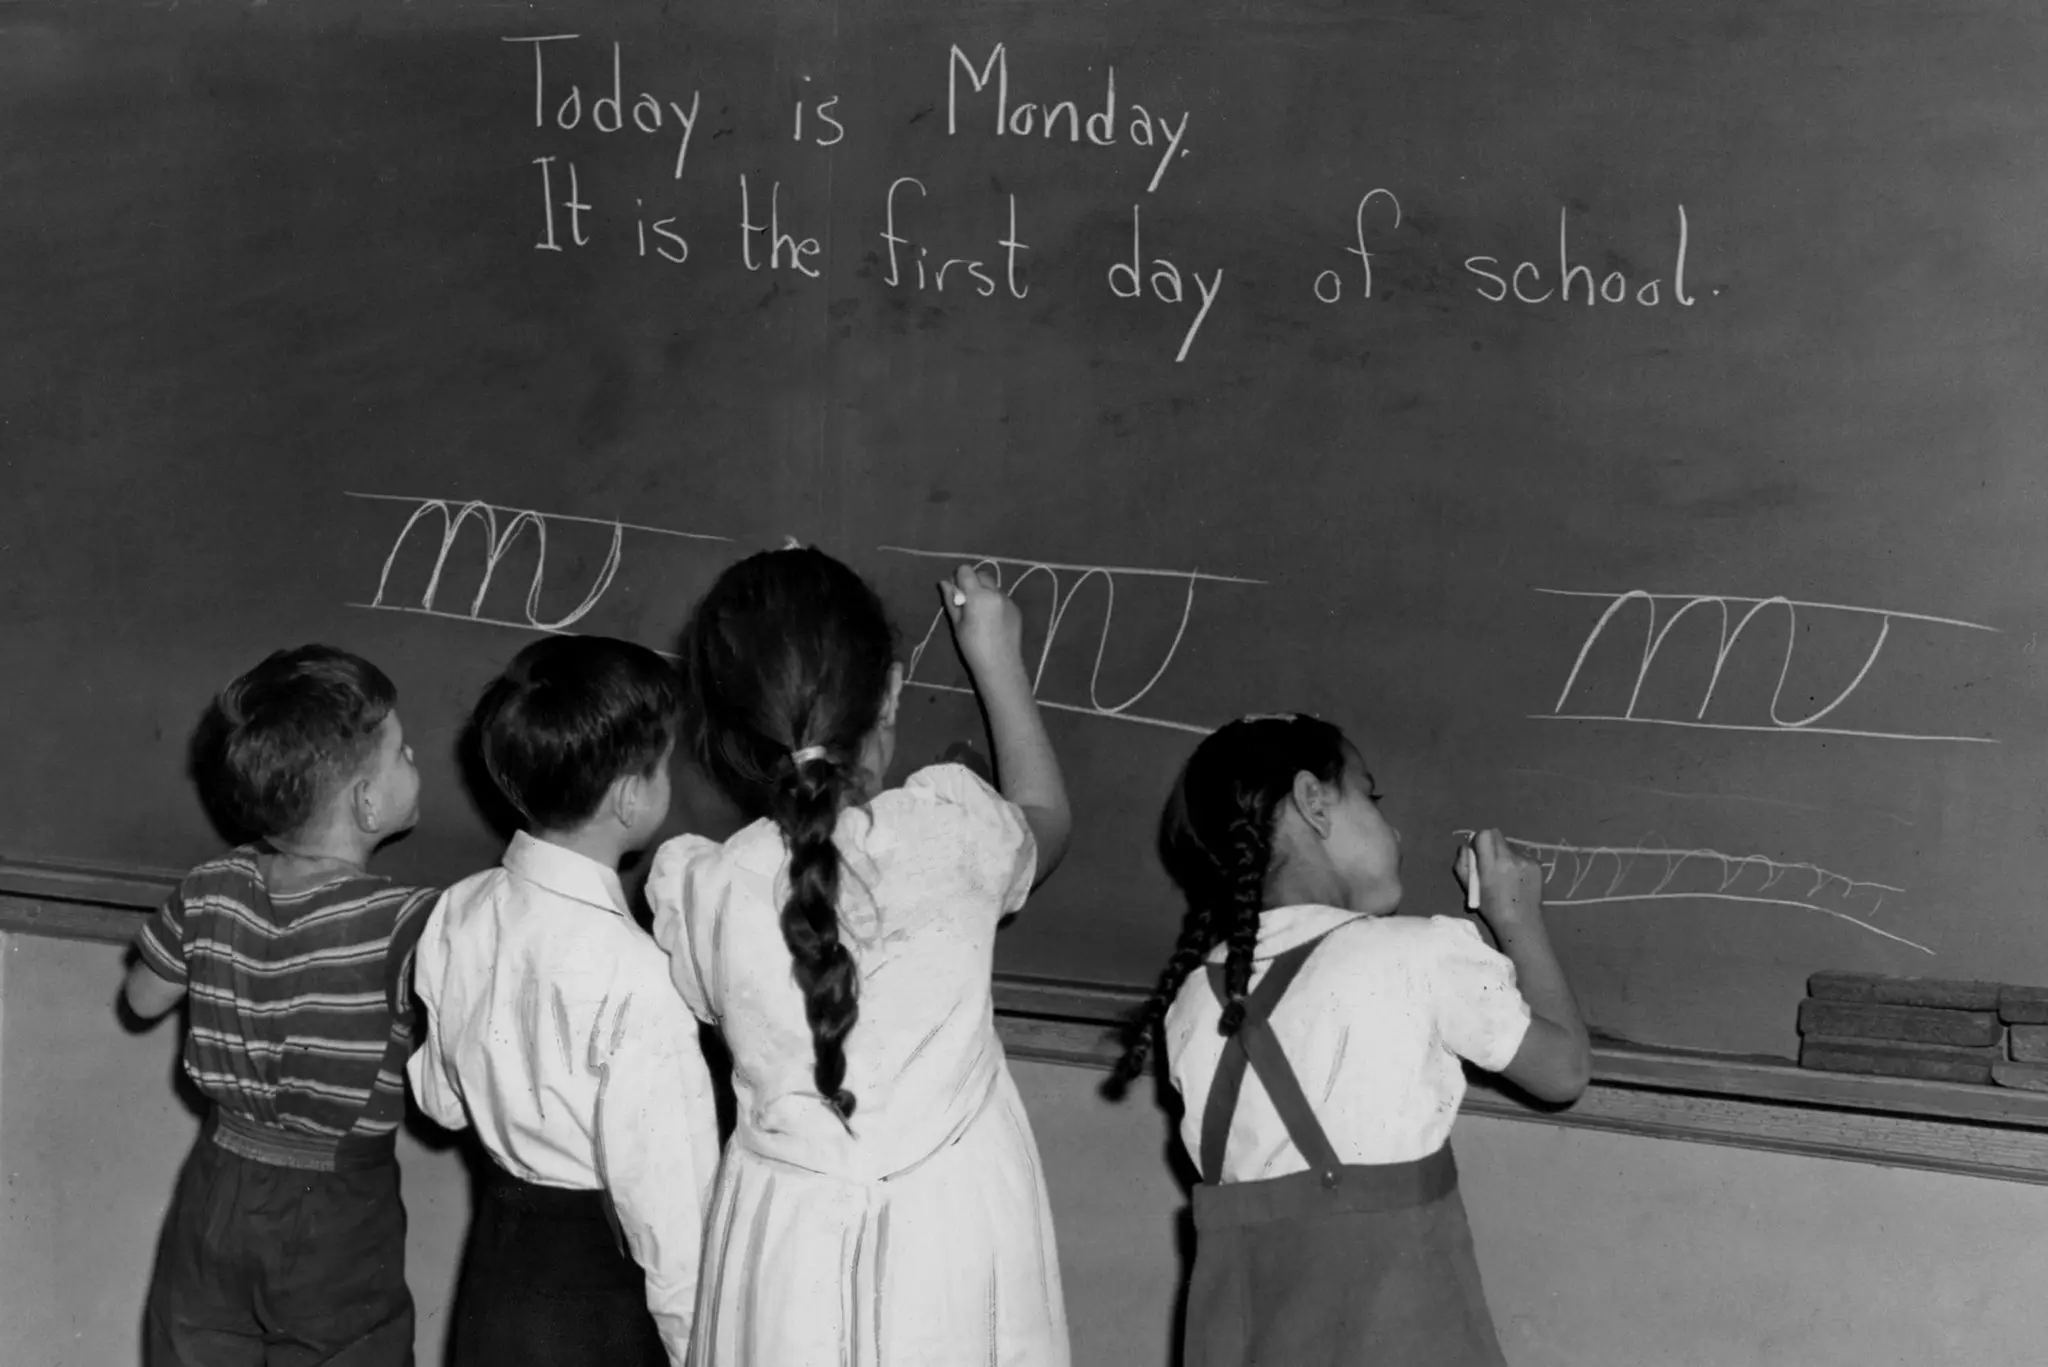 Today is Monday.
It is the first day of school.
m m m